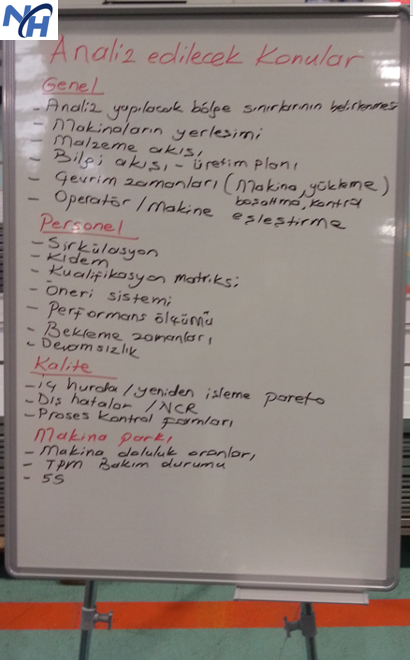 NH
Analiz edilecek Konular
Genel
- Analiz yapılacak bölge sınırlarının belirlenmesi
- Makinaların yerleşimi
- Malzeme akışı
- Bilgi akışı - üretim planı
- Çevrim zamanları (Makina, yükleme)
boşaltma, kontrol
- Operatör / Makine eşleştirme
Personel
- Sirkülasyon
- Kıdem
- Kualifikasyon matriksi
- Öneri sistemi
- Performans ölçümü
- Bekleme zamanları
- Devamsızlık
Kalite
- iç hurda / yeniden işleme pareto
- Dış hatalar / NCR
- Proses kontrol formları
Makina parkı
- Makina doluluk oranları
- TPM Bakım durumu
- 5S